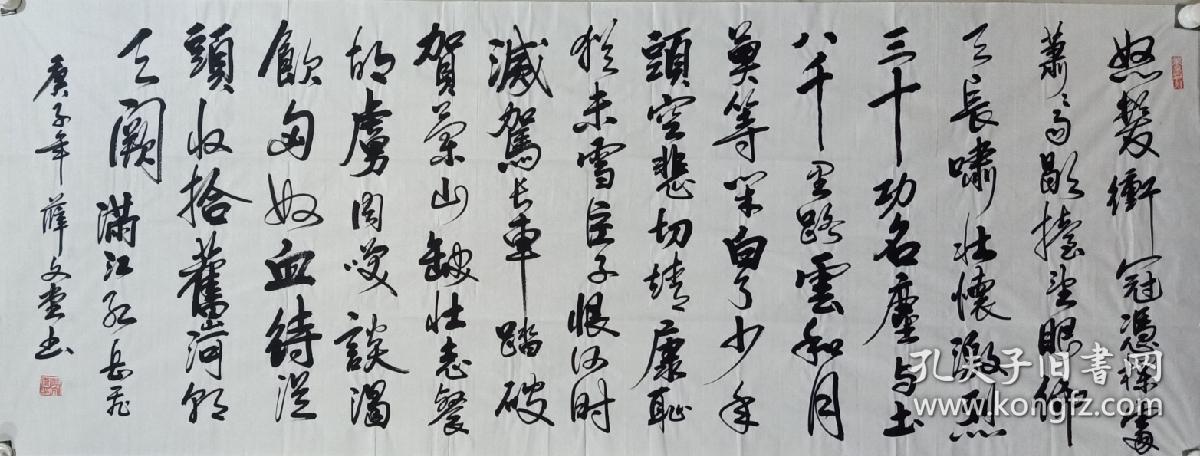 怒髮衝冠憑欄處
蕭々雨歇擡望眼仰
天長嘯壯懷激烈
三十功名塵与土
八千里路雲和月
莫等閑白了少年
頭空悲切靖康恥
猶未雪臣子恨何时
滅駕长車踏破
賀蘭山缺壮志餐
胡虜肉笑談渴
飲匈奴血待從
頭收拾舊山河朝
天闕 满江红 岳飛
庚子年 薛文堂书
孔夫子旧书网
www.kongfz.com